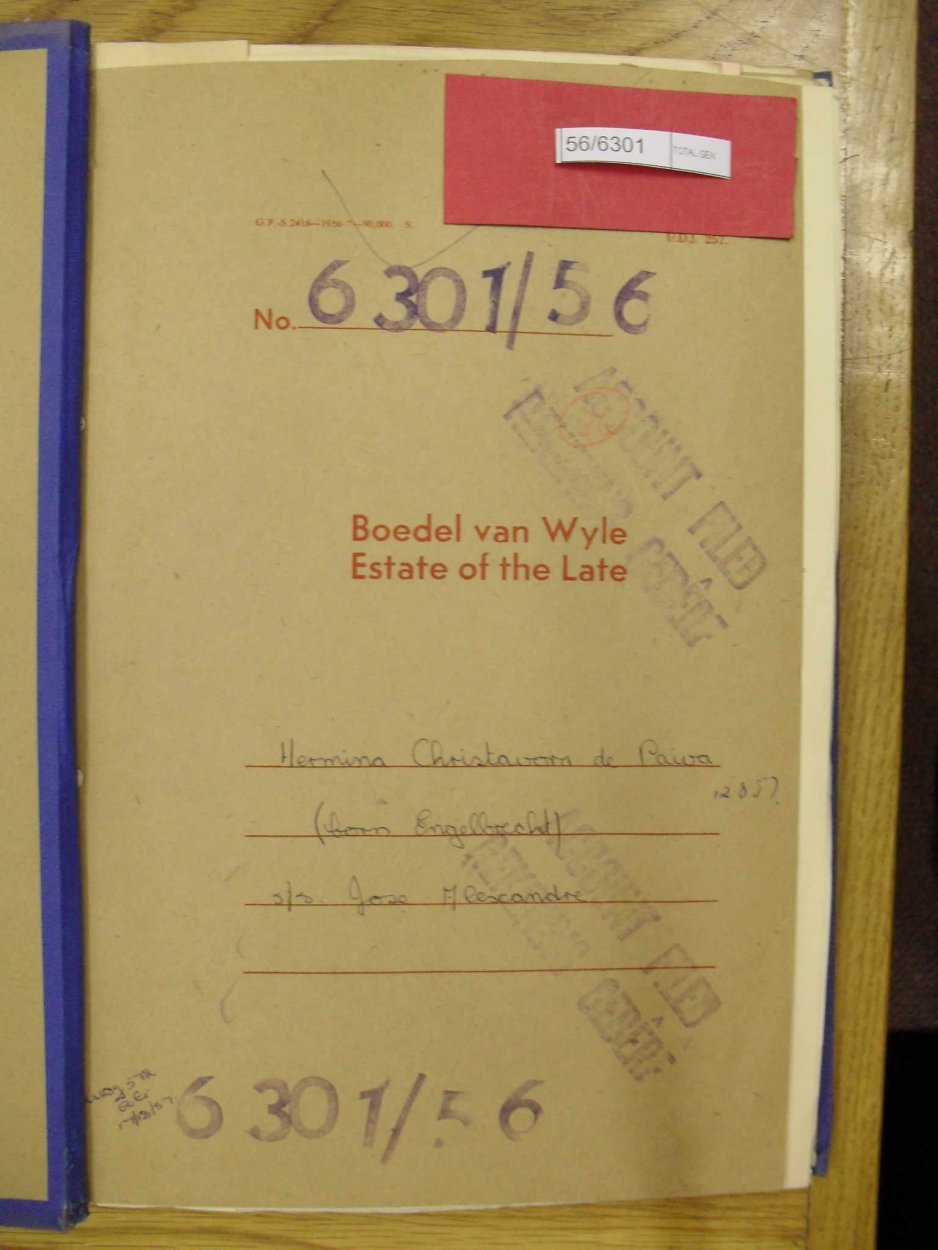 56/6301 TOTAL GEN
G.P.-S.2418—1956-7—90,000 S.
U.D.J. 257.
No. 6301/56
ACCOUNT FILED
REKENING GEBÊRE
Boedel van Wyle
Estate of the Late
Hermina Christavorn de Paiva
(born Engelbrecht)
s/s. Jose Alexandre
ACCOUNT FILED
REKENING GEBÊRE
6301/56